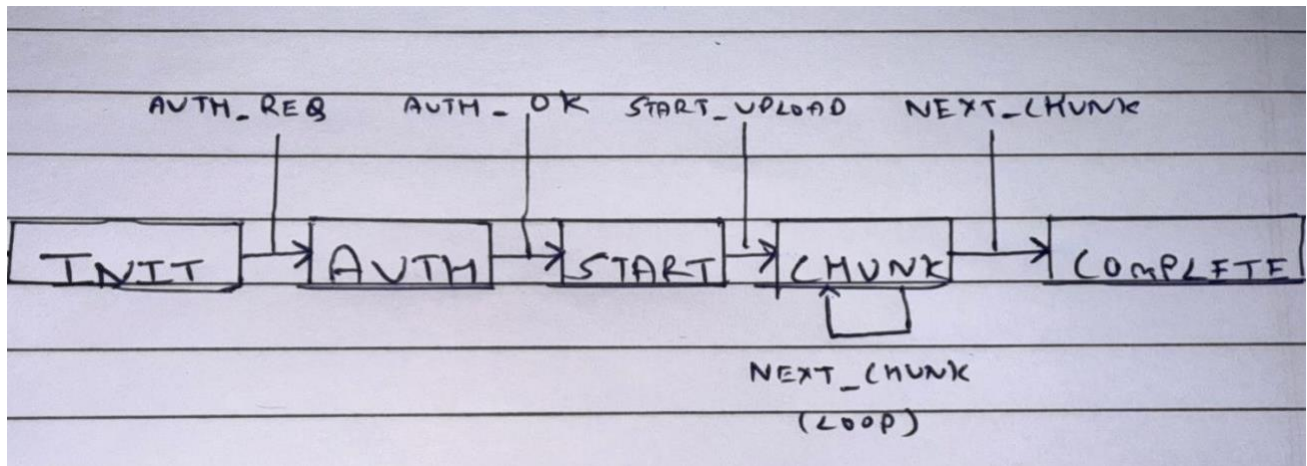 AUTH_REQ AUTH_OK START_UPLOAD NEXT_CHUNK
INIT AUTH START CHUNK COMPLETE
NEXT_CHUNK
(LOOP)